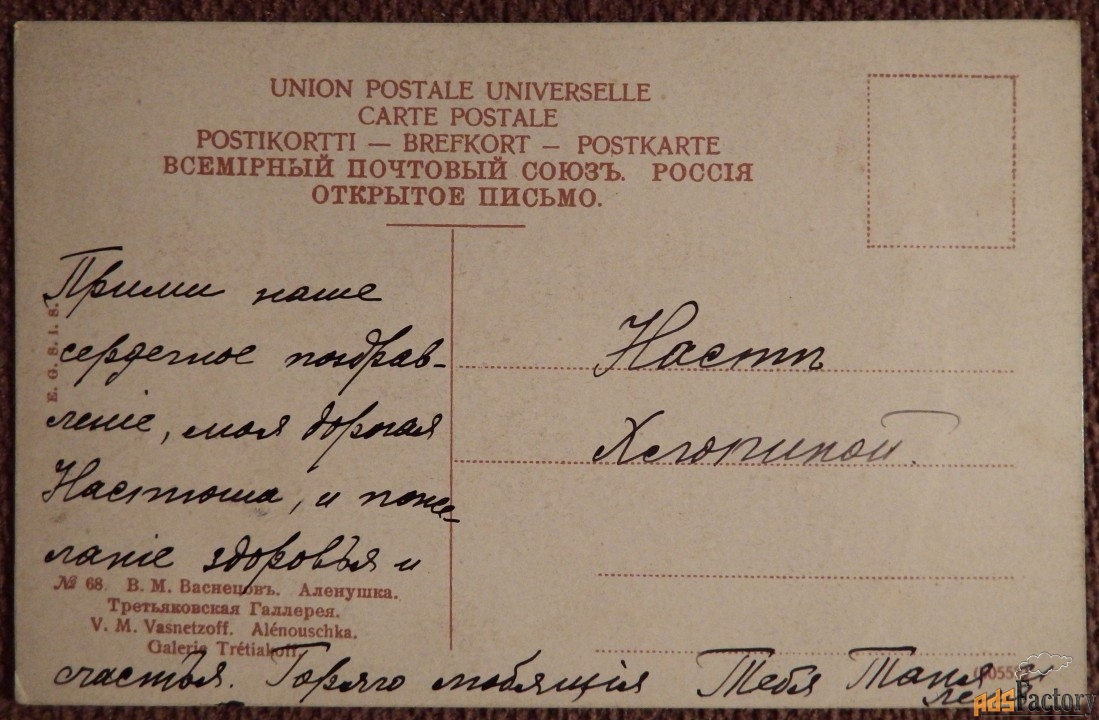 UNION POSTALE UNIVERSELLE
CARTE POSTALE
POSTIKORTTI — BREFKORT — POSTKARTE
ВСЕМІРНЫЙ ПОЧТОВЫЙ СОЮЗЪ. РОССІЯ
ОТКРЫТОЕ ПИСЬМО.
Прими наше
сердечное поздрав-
леніе, моя дорогая
Настюша, и поже-
ланіе здоровья и
счастья. Горячо любящія Тебя Таня
Настѣ
E. G. S. I. S.
№ 68. В. М. Васнецовъ. Аленушка.
Третьяковская Галлерея.
V. M. Vasnetzoff. Alénouschka.
Galerie Trétiakoff.
adsFactory